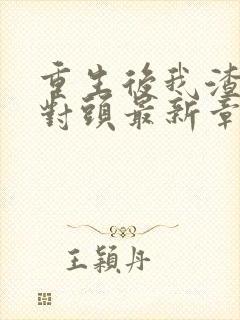 重生後我渣
對頭最新章
王穎丹